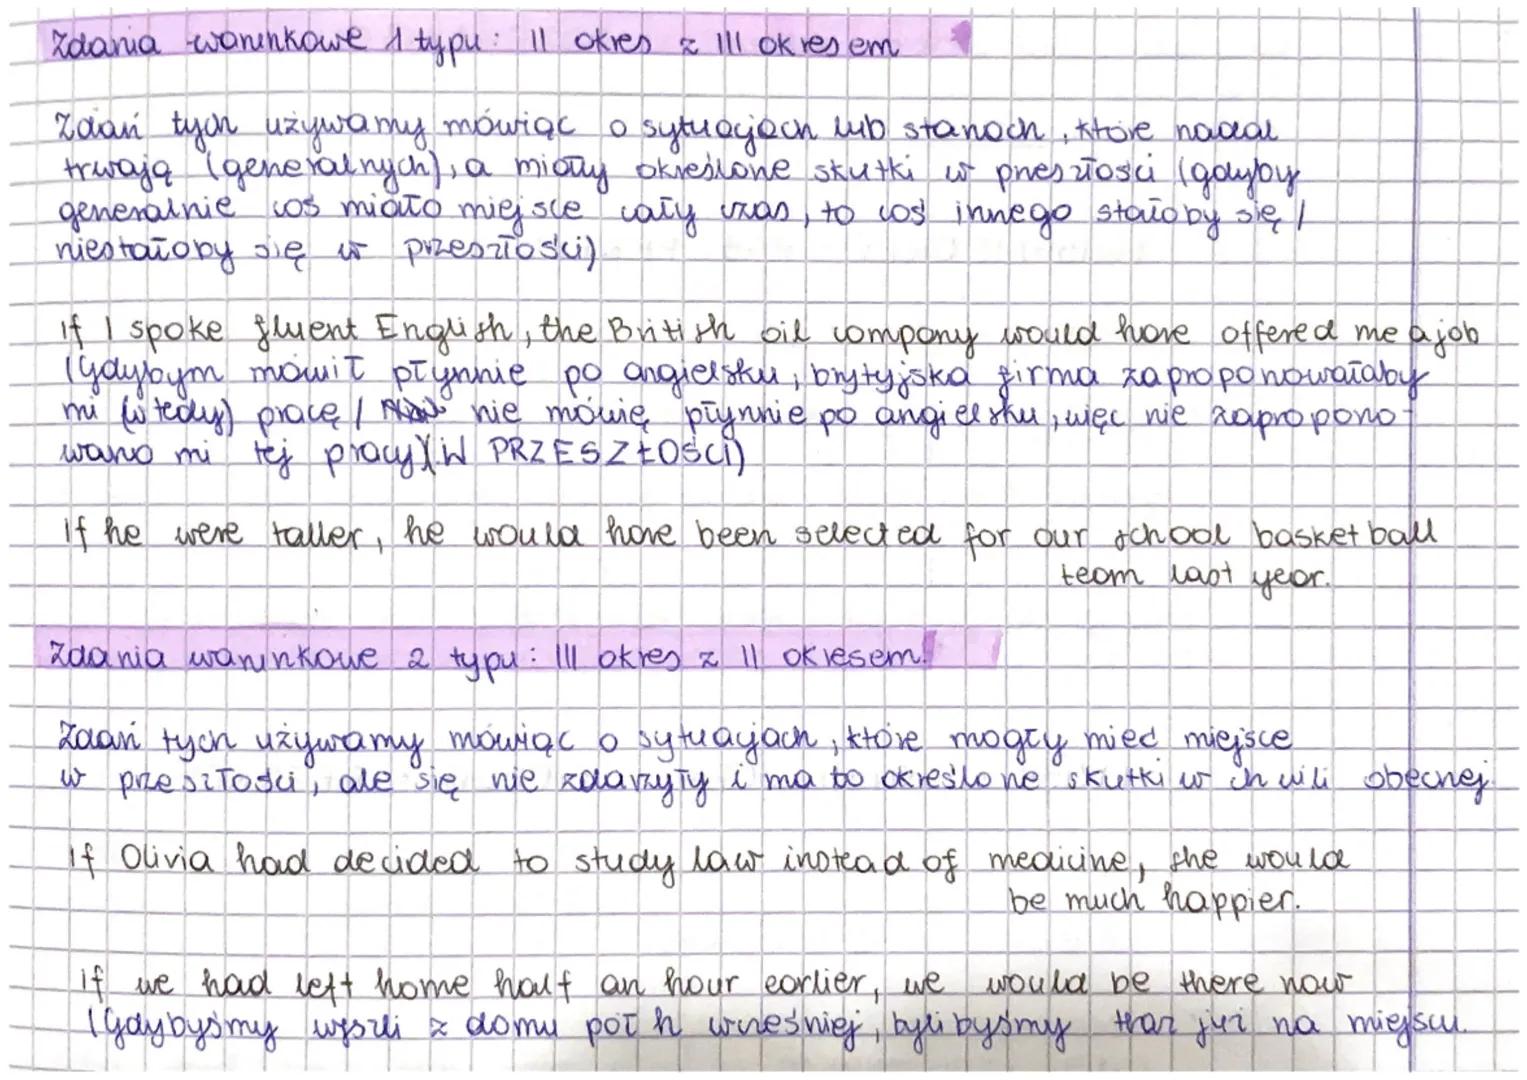 Zdania warunkowe 1 typu: II okres z III okresem
Zdań tych używamy mówiąc o sytuacjach lub stanach, które nadal
trwają (generalnych), a miały określone skutki w przeszłości (gdyby
generalnie coś miało miejsce cały czas, to coś innego stałoby się /
niestałoby się w przeszłości)
If I spoke fluent English, the British oil company would have offered me a job
(Gdybym mówił płynnie po angielsku, brytyjska firma zaproponowałaby
mi (wtedy) pracę / nie mówię płynnie po angielsku, więc nie zapropono-
wano mi tej pracy)(W PRZESZŁOŚCI)
If he were taller, he would have been selected for our school basketball
team last year.
Zdania warunkowe 2 typu: III okres z II okresem!
Zdań tych używamy mówiąc o sytuacjach, które mogły mieć miejsce
w przeszłości, ale się nie zdarzyły i ma to określone skutki w chwili obecnej
If Olivia had decided to study law instead of medicine, she would
be much happier.
If we had left home half an hour earlier, we would be there now
(Gdybyśmy wyszli z domu pół h wcześniej, bylibyśmy teraz już na miejscu.